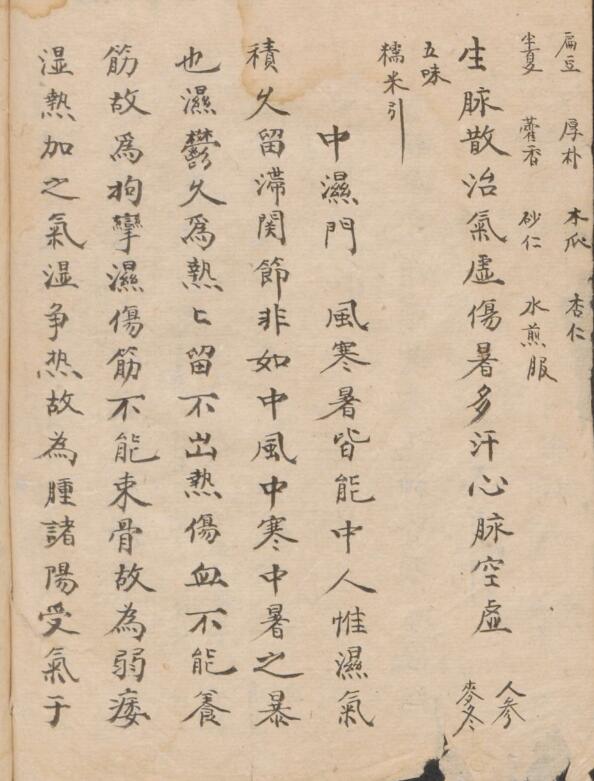 扁豆 厚朴 木瓜 杏仁
半夏 藿香 砂仁 水煎服
生脉散治氣虛傷暑多汗心脉空虛 人参 麥冬
五味
糯米引
中濕門 風寒暑皆能中人惟濕氣
積久留滯関節非如中風中寒中暑之暴
也濕鬱久爲熱匕留不出熱傷血不能養
筋故爲拘攣濕傷筋不能束骨故為弱痿
湿熱加之氣湿争热故為腫諸陽受氣于